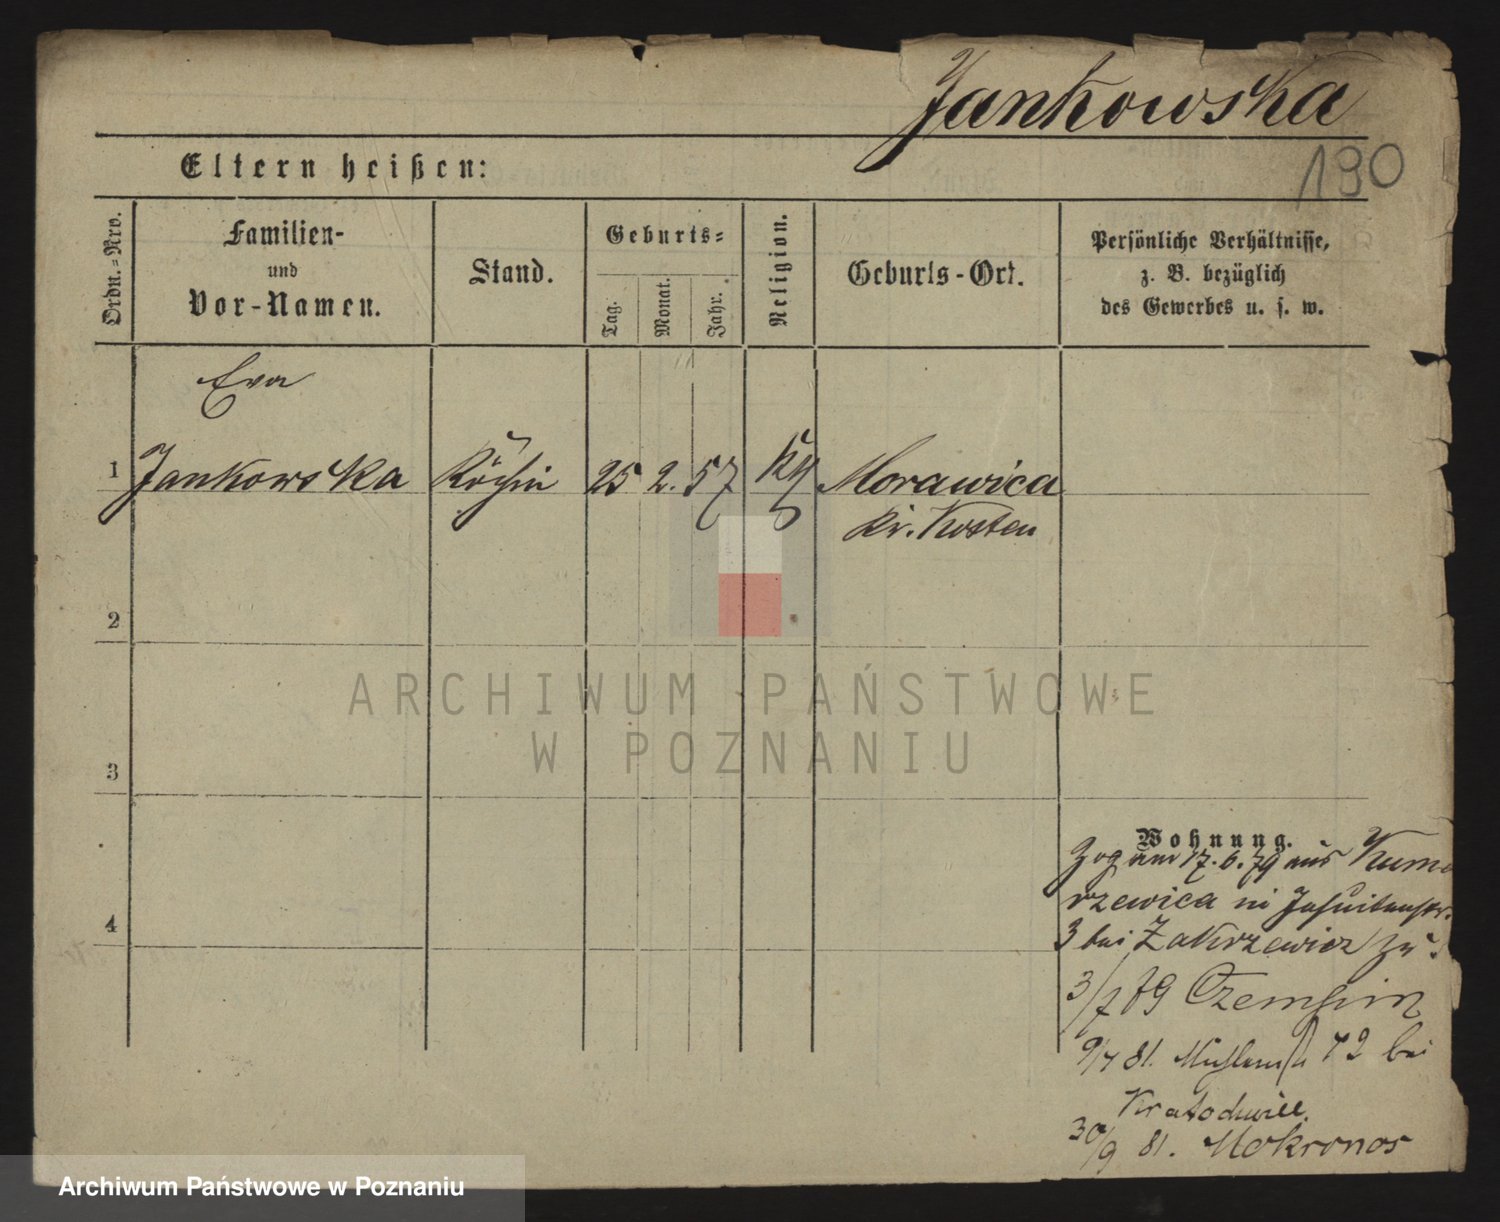 Jankowska
190
Eltern heißen:
Ordn.=Nro.
Familien-
und
Vor-Namen.
Stand.
Geburts=
Tag.
Monat.
Jahr.
Religion.
Geburts-Ort.
Persönliche Verhältnisse,
z. B. bezüglich
des Gewerbes u. s. w.
Eva
1 Jankowska Köchin 25 2. 57 Morawica
Kr. Kosten
2
3
4
ARCHIWUM PAŃSTWOWE
W POZNANIU
Wohnung.
Zog am 17. 6. 79 aus
in Jesuitenstr.
3 bei Zakrzewicz
3/7 79 Czempin
9/7 81. 72 bei
30/9 81. Mokronos
Archiwum Państwowe w Poznaniu